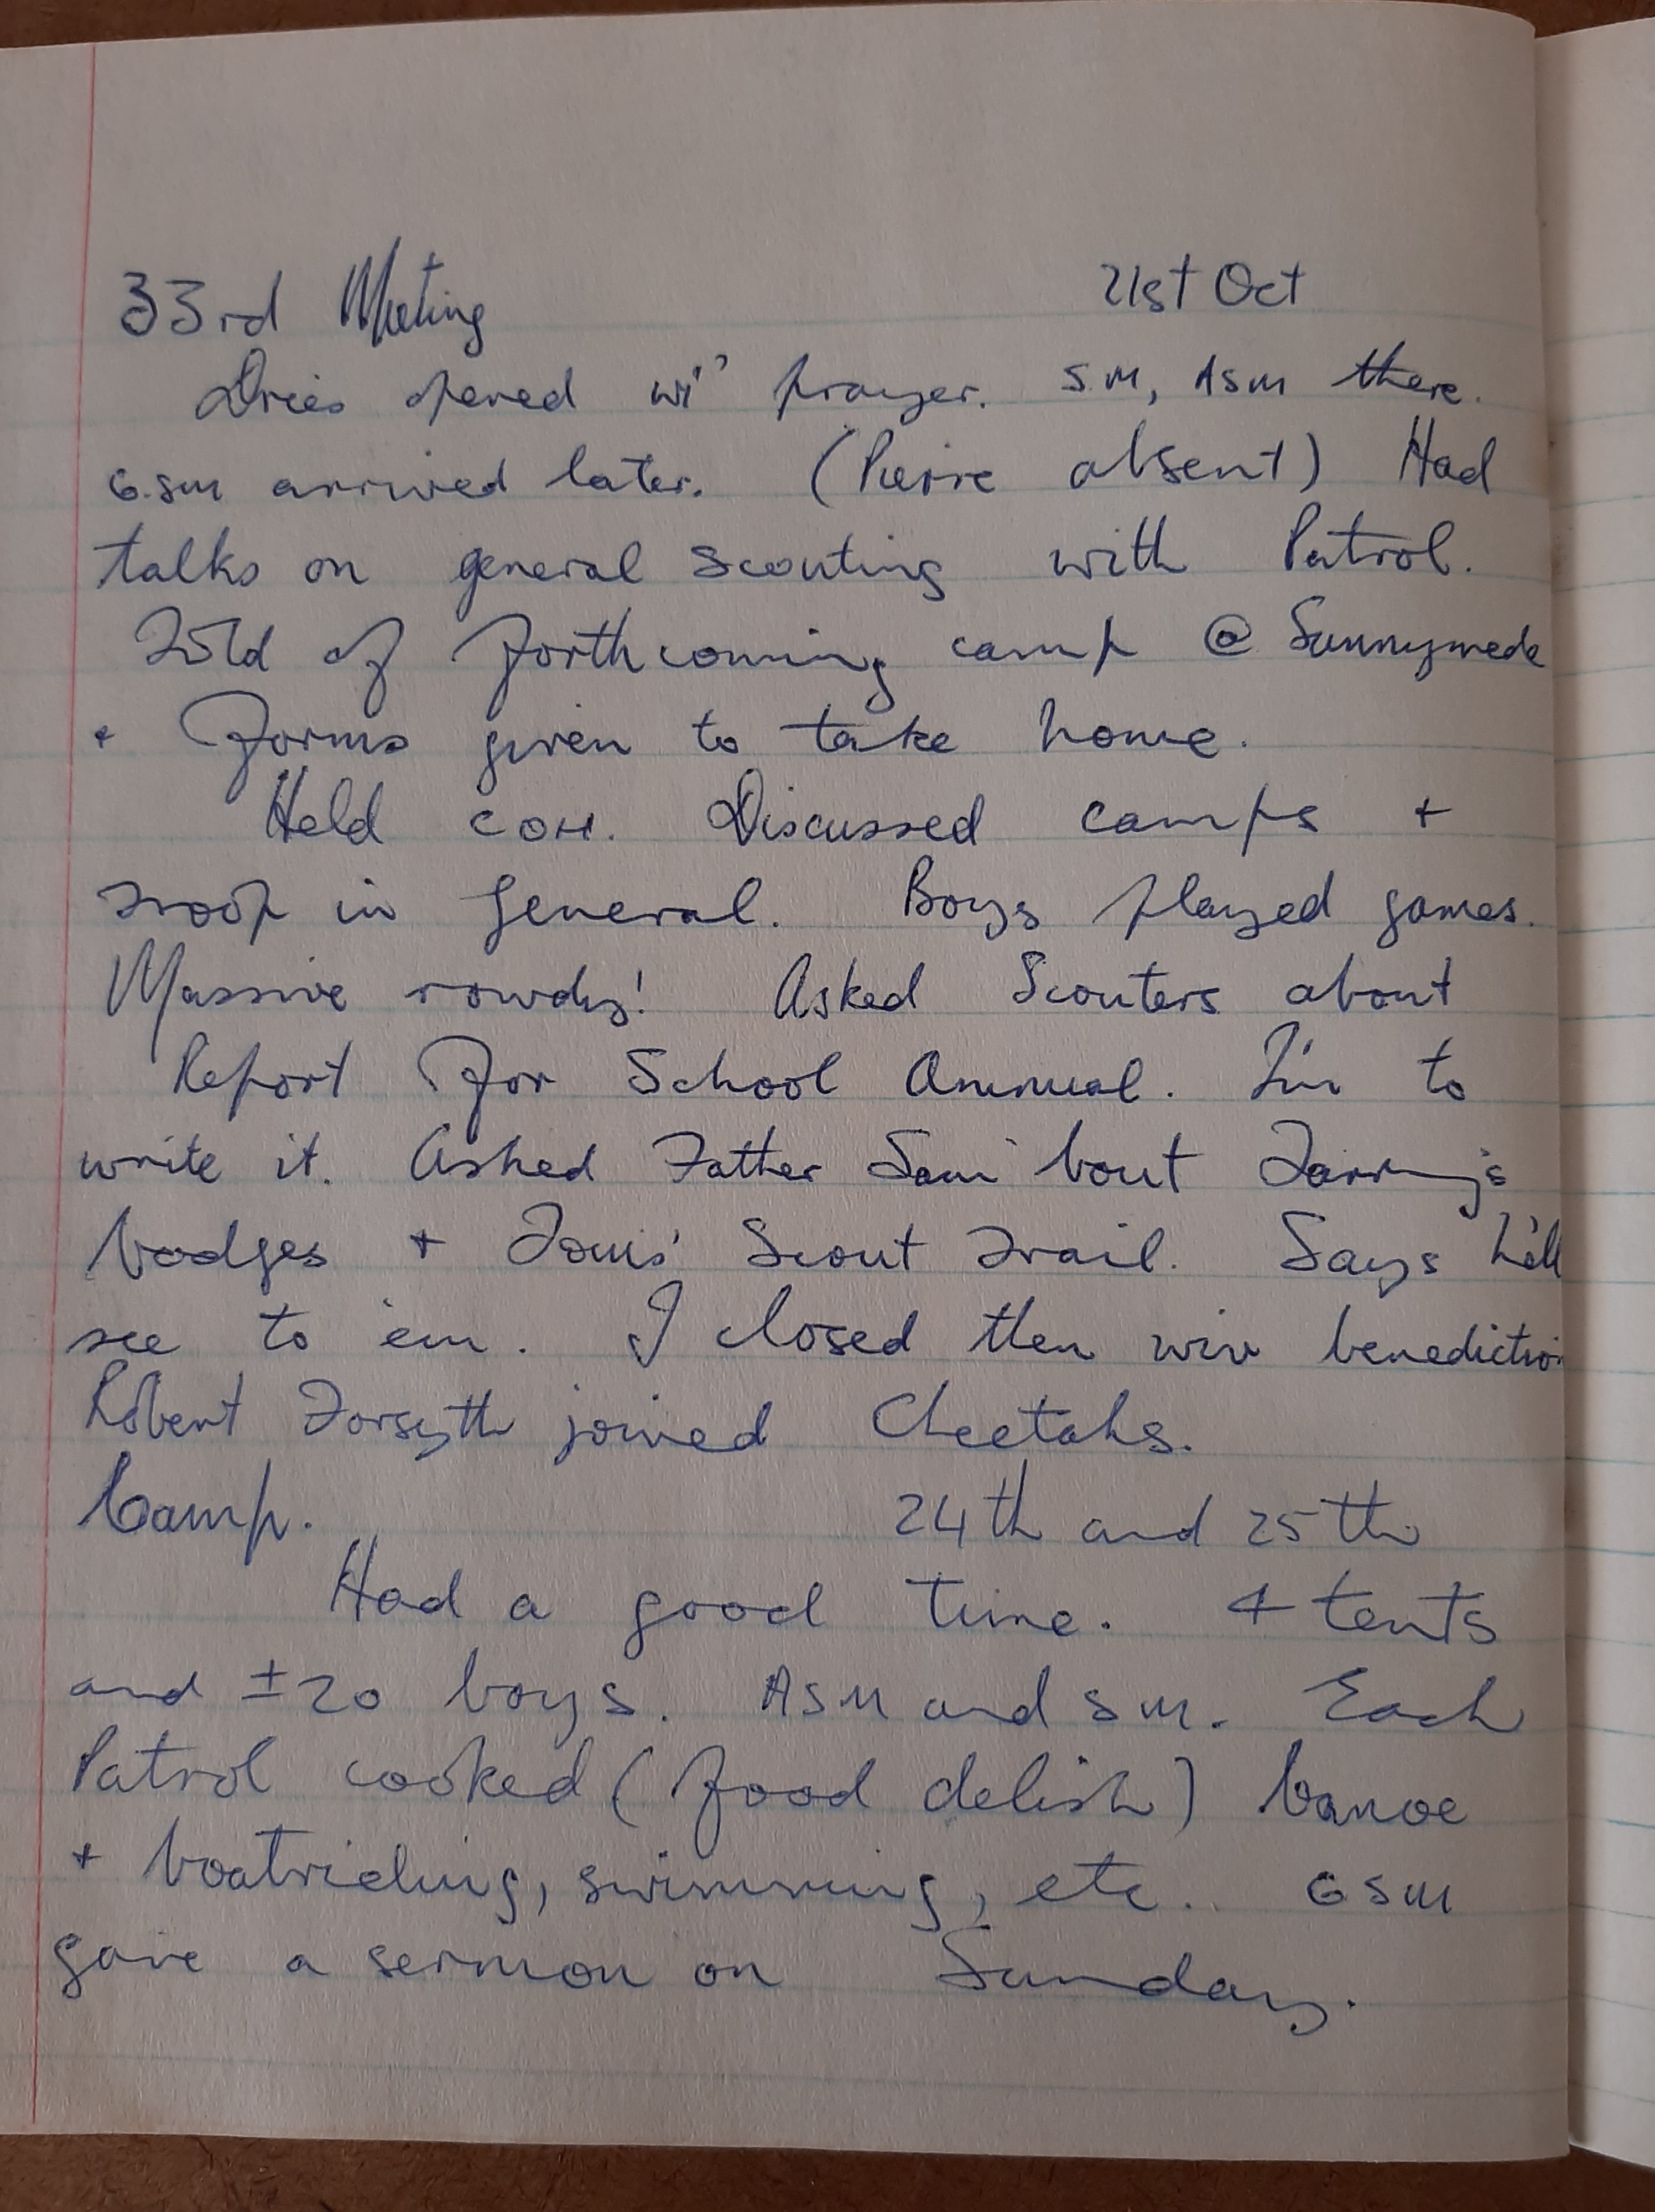 33rd Meeting 21st Oct
Dries opened wi' prayer. S.M, ASM there.
G.SM arrived later. (Pierre absent) Had
talks on general scouting with Patrol.
Told of forthcoming camp @ Sunnymede
+ forms given to take home.
Held COH. Discussed camps +
Troop in general. Boys played games.
Massive rowdy! Asked Scouters about
Report for School Annual. I'm to
write it. Asked Father Sam 'bout
badges + Tom's Scout Trail. Says he'll
see to 'em. I closed then wiv benediction
Robert Forsyth joined Cheetahs.
Camp. 24th and 25th
Had a good time. 4 tents
and ±20 boys. ASM and SM. Each
Patrol cooked (food delish) Canoe
+ boatriding, swimming, etc.. GSM
gave a sermon on Sunday.